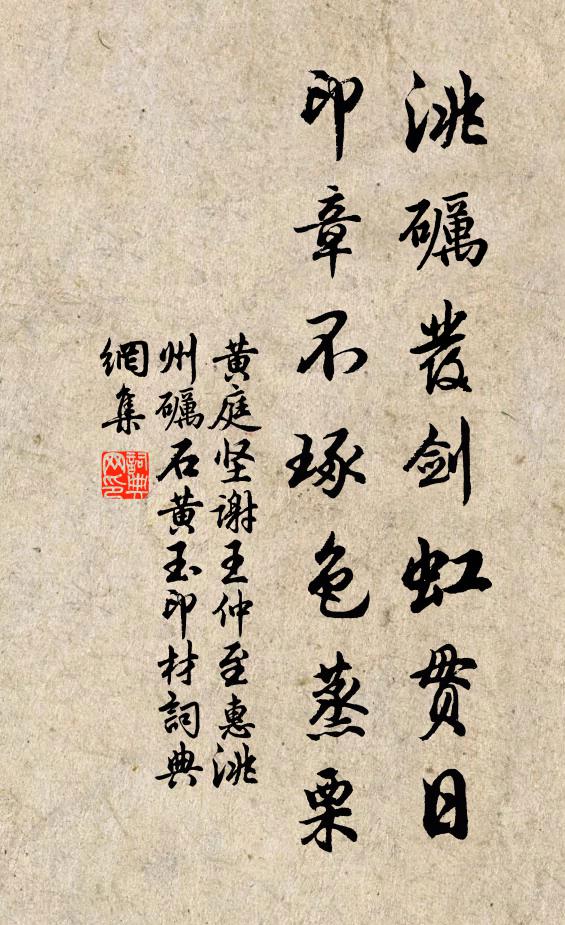 洮礪發剑虹贯日
印章不琢色蒸栗
黄庭坚谢王仲至惠洮
州礪石黄玉印材詞典
網集
詞典網印